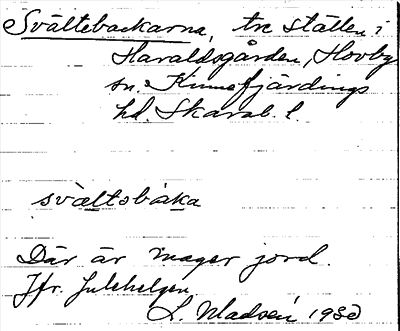 Svältebackarna, tre ställen i
Haraldsgården, Hovby
sn. Kinnefjärdings
hd. Skarab. l.
svæltobáka
Där är mager jord.
Jfr. Julehelgen
L. Madsén 1930